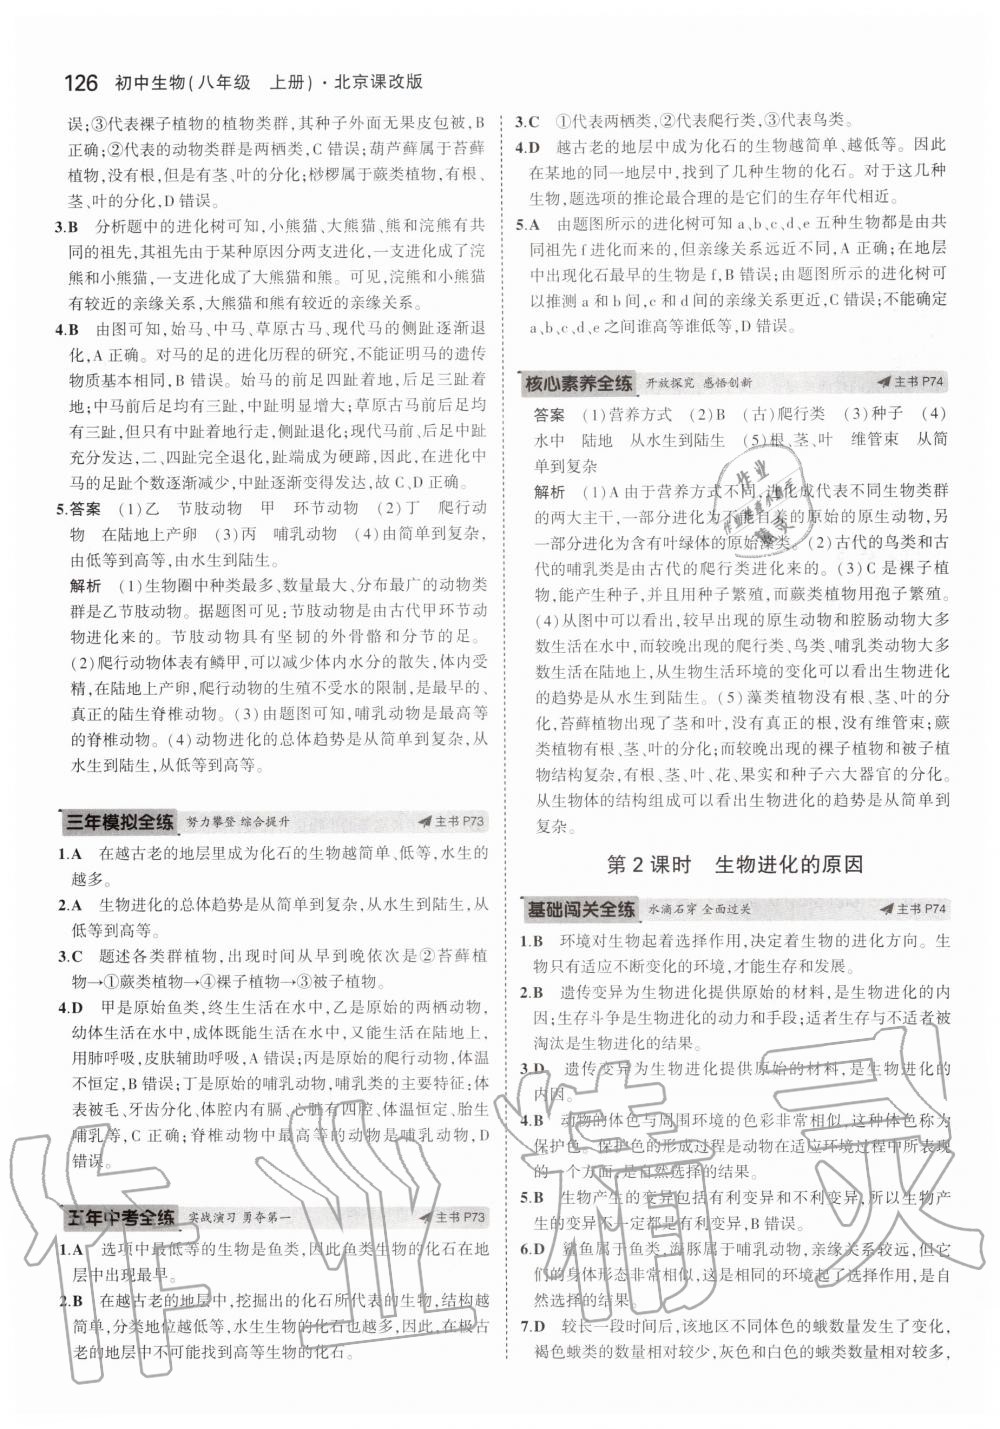 126 初中生物(八年级 上册)·北京课改版
误;③代表裸子植物的植物类群,其种子外面无果皮包被,B
正确;②代表的动物类群是两栖类,C错误;葫芦藓属于苔藓
植物,没有根,但是有茎、叶的分化;桫椤属于蕨类植物,有根、
茎、叶的分化,D错误。
3.B 分析题中的进化树可知,小熊猫、大熊猫、熊和浣熊有共
同的祖先,其祖先由于某种原因分两支进化,一支进化成了浣
熊和小熊猫,一支进化成了大熊猫和熊。可见,浣熊和小熊猫
有较近的亲缘关系,大熊猫和熊有较近的亲缘关系。
4.B 由图可知,始马、中马、草原古马、现代马的侧趾逐渐退
化,A正确。对马的足的进化历程的研究,不能判断马的遗传
物质基本相同,B错误。始马的前足四趾着地,后足三趾着
地;中马前后足均有三趾,中趾明显增大;草原古马前后足均
有三趾,但只有中趾着地行走,侧趾退化;现代马前后足中趾
充分发达,二、四趾完全退化,趾端成为硬蹄,因此,在进化中
马的足趾个数逐渐减少,中趾逐渐变得发达,故C、D正确。
5.答案 (1)乙 节肢动物 甲 环节动物 (2)丁 爬行动
物 在陆地上产卵 (3)丙 哺乳动物 (4)由简单到复杂,
由低等到高等,由水生到陆生。
解析 (1)生物圈中种类最多、数量最大、分布最广的动物类
群是乙节肢动物。据题图可见:节肢动物是由古代甲环节动
物进化来的。节肢动物具有坚韧的外骨骼和分节的足。
(2)爬行动物体表有鳞甲,可以减少体内水分的散失,体内受
精,在陆地上产卵,爬行动物的生殖不受水的限制,是最早的、
真正的陆生脊椎动物。(3)由题图可知,哺乳动物是最高等
的脊椎动物。(4)动物进化的总体趋势是从简单到复杂,从
水生到陆生,从低等到高等。
三年模拟全练 努力攀登 综合提升 主书P73
1.A 在越古老的地层里成为化石的生物越简单、低等,水生的
越多。
2.A 生物进化的总体趋势是从简单到复杂,从水生到陆生,从
低等到高等。
3.C 题述各类群植物,出现时间从早到晚依次是②苔藓植
物→①蕨类植物→④裸子植物→③被子植物。
4.D 甲是原始鱼类,终生生活在水中,乙是原始的两栖动物,
幼体生活在水中,成体既能生活在水中,又能生活在陆地上,
用肺呼吸,皮肤辅助呼吸,A错误;丙是原始的爬行动物,体温
不恒定,B错误;丁是原始的哺乳动物,哺乳类的主要特征:体
表被毛、牙齿分化、体腔内有膈、心脏有四腔、体温恒定、胎生
哺乳等,C正确;脊椎动物中最高等的动物是哺乳动物,D
错误。
五年中考全练 实战演习 勇夺第一 主书P73
1.A 选项中最低等的生物是鱼类,因此鱼类生物的化石在地
层中出现最早。
2.B 在越古老的地层中,挖掘出的化石所代表的生物,结构越
简单,分类地位越低等,水生生物的化石也越多,因此,在极古
老的地层中找不到高等生物的化石。
3.C ①代表两栖类,②代表爬行类,③代表鸟类。
4.D 越古老的地层中成为化石的生物越简单、越低等。因此
在某地的同一地层中,找到了几种生物的化石。对于这几种
生物,题选项的推论最合理的是它们的生存年代相近。
5.A 由题图所示的进化树可知a、b、c、d、e五种生物都是由共
同祖先f进化而来的,但亲缘关系远近不同,A正确;在地层
中出现化石最早的生物是f,B错误;由题图所示的进化树可
以推测a和b间,c和d间的亲缘关系更近,C错误;不能确定
a、b、c、d、e之间谁高等谁低等,D错误。
核心素养全练 开放探究 感悟创新 主书P74
答案 (1)营养方式 (2)B (古)爬行类 (3)种子 (4)
水中 陆地 从水生到陆生 (5)根、茎、叶 维管束 从简
单到复杂
解析 (1)A由于营养方式不同,进化成代表不同生物类群
的两大主干,一部分进化为不能自养的原始的原生动物,另
一部分进化为含有叶绿体的原始藻类。(2)古代的鸟类和古
代的哺乳类是由古代的爬行类进化来的。(3)C是裸子植
物,能产生种子,并且用种子繁殖,而蕨类植物用孢子繁殖。
(4)从图中可以看出,较早出现的原生动物和腔肠动物大多
数生活在水中,而较晚出现的爬行类、鸟类、哺乳类动物大多
数生活在陆地上,从生物生活环境的变化可以看出生物进化
的趋势是从水生到陆生。(5)藻类植物没有根、茎、叶的分
化,苔藓植物出现了茎和叶,没有真正的根,没有维管束;蕨
类植物有根、茎、叶的分化;而较晚出现的裸子植物和被子植
物结构复杂,有根、茎、叶、花、果实和种子六大器官的分化。
从生物体的结构组成可以看出生物进化的趋势是从简单到
复杂。
第2课时 生物进化的原因
基础闯关全练 水滴石穿 全面过关 主书P74
1.B 环境对生物起着选择作用,决定着生物的进化方向。生
物只有适应不断变化的环境,才能生存和发展。
2.B 遗传变异为生物进化提供原始的材料,是生物进化的内
因;生存斗争是生物进化的动力和手段;适者生存与不适者被
淘汰是生物进化的结果。
3.D 遗传变异为生物进化提供原始的材料,是生物进化的
内因。
4.B 动物的体色与周围环境的色彩非常相似,这种体色称为
保护色。保护色的形成过程是动物在适应环境过程中所表现
的一个方面,是自然选择的结果。
5.B 生物产生的变异包括有利变异和不利变异,所以生物产
生的变异不都是有利的,B错误。
6.D 鲨鱼属于鱼类,海豚属于哺乳动物,亲缘关系较远,但它
们的身体形态非常相似,这是相同的环境起了选择作用,是自
然选择的结果。
7.D 较长一段时间后,该地区不同体色的蛾数量发生了变化,
褐色蛾类的数量相对较少,灰色和白色的蛾类数量相对较多,
作业精灵